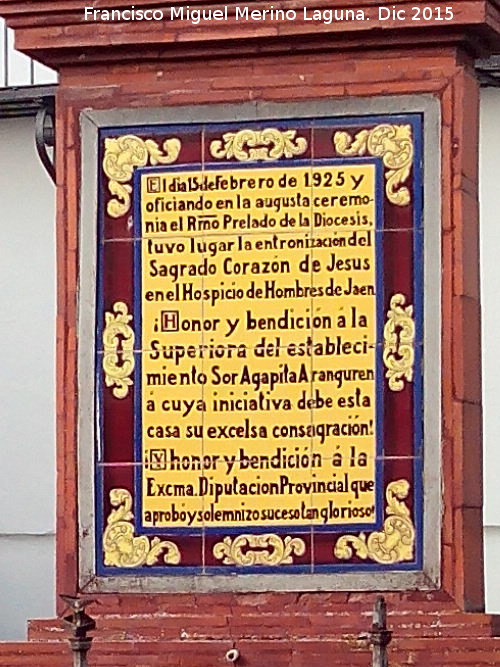 Francisco Miguel Merino Laguna. Dic 2015
El dia 15 de febrero de 1.925 y
oficiando en la augusta ceremo-
nia el Rmo Prelado de la Diocesis,
tuvo lugar la entronización del
Sagrado Corazón de Jesus
en el Hospicio de Hombres de Jaen
¡Honor y bendición á la
Superiora del estableci-
miento Sor Agapita Aranguren
á cuya iniciativa debe esta
casa su excelsa consagración!
¡Y honor y bendición á la
Excma. Diputacion Provincial que
aprobó y solemnizo suceso tan glorioso!